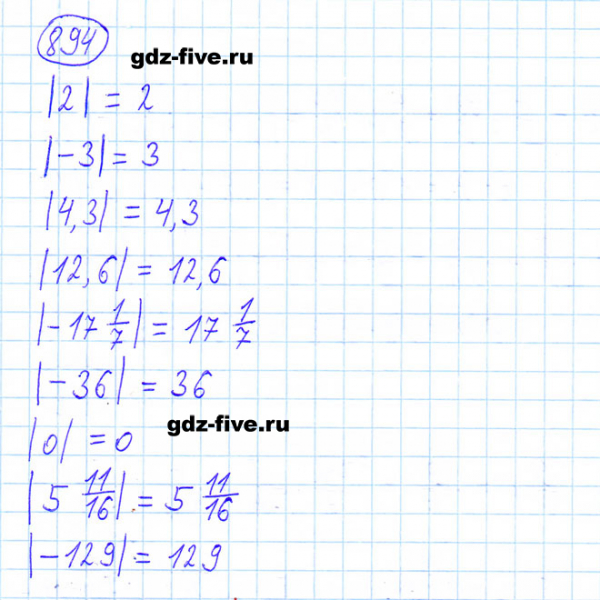 894
gdz-five.ru
|2| = 2
|-3| = 3
|4,3| = 4,3
|12,6| = 12,6
|-17 1/7| = 17 1/7
|-36| = 36
gdz-five.ru
|0| = 0
|5 11/16| = 5 11/16
|-129| = 129